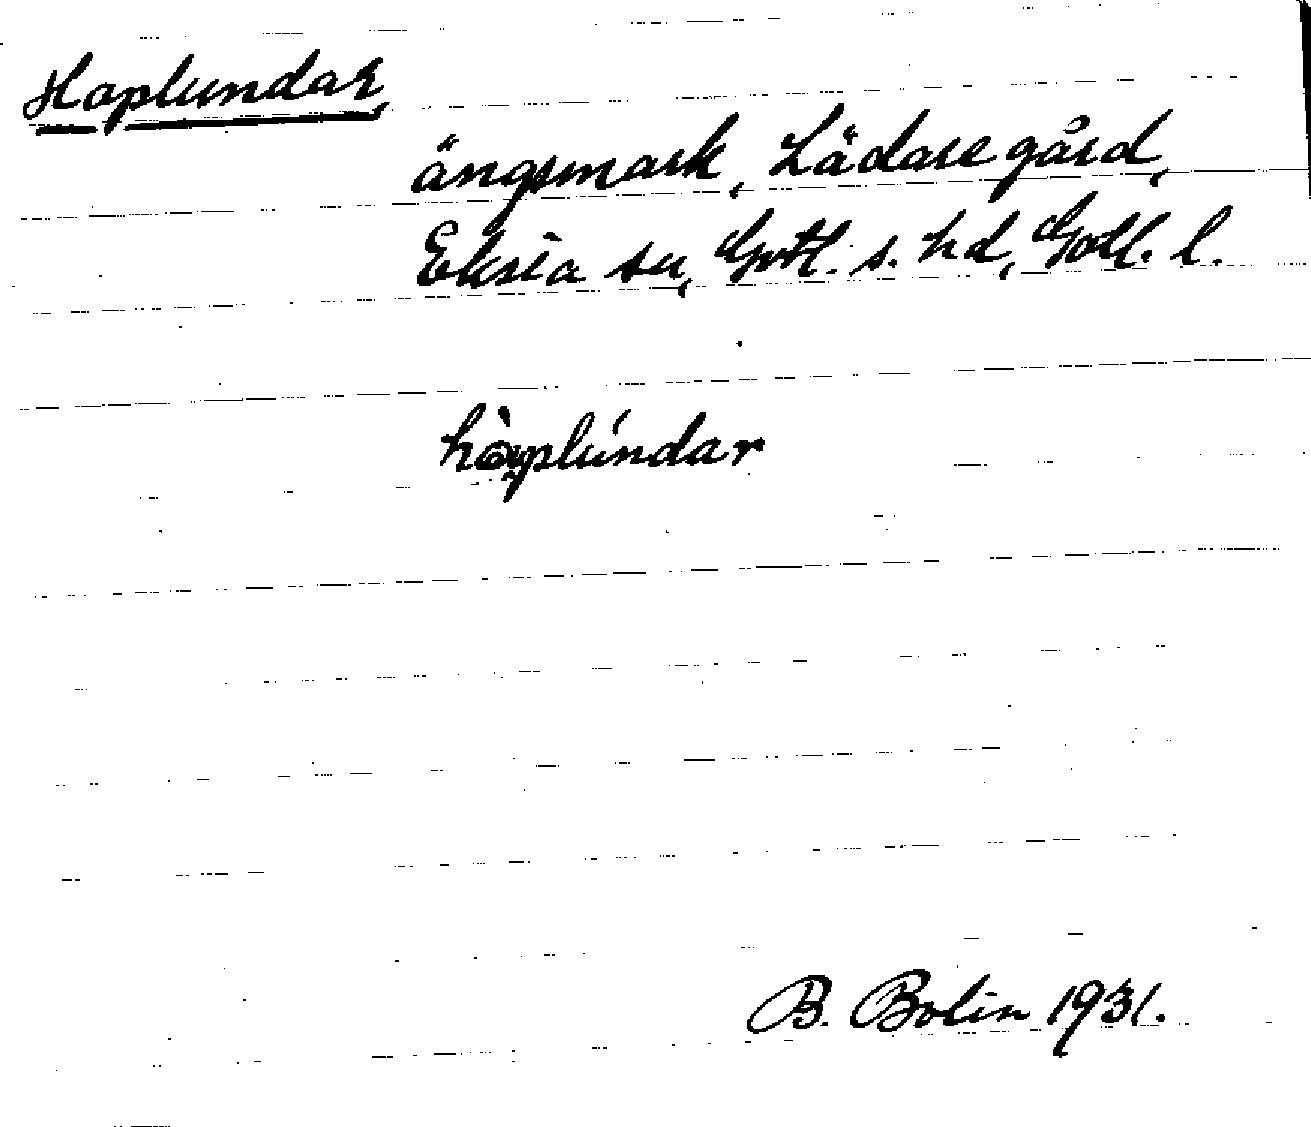 Haplundar,
ängsmark, Lädare gård,
Eksta sn, Gotl. s. hd, Gotl. l.
B. Bolin 1931.